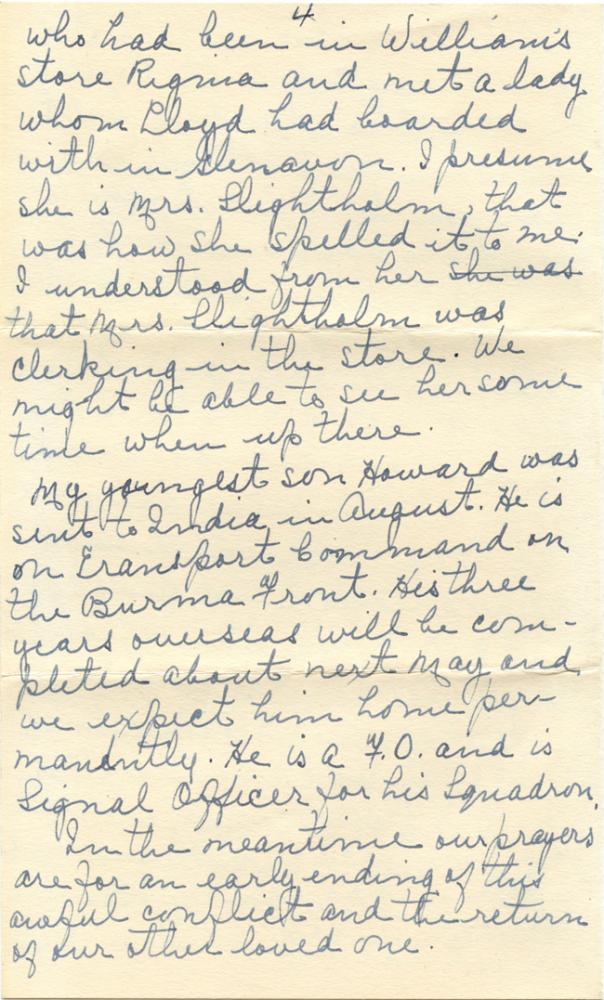 4
who had been in William's
store Regina and met a lady
whom Lloyd had boarded
with in Glenavon. I presume
she is Mrs. Slightholm, that
was how she spelled it to me.
I understood from her she was
that Mrs. Slightholm was
clerking in the store. We
might be able to see her some
time when up there.
My youngest son Howard was
sent to India in August. He is
on Transport Command on
the Burma Front. His three
years overseas will be com-
pleted about next May and
we expect him home per-
mandntly. He is a F.O. and is
Signal Officer for his Squadron.
In the meantime our prayers
are for an early ending of this
awful conflict and the return
of our other loved one.